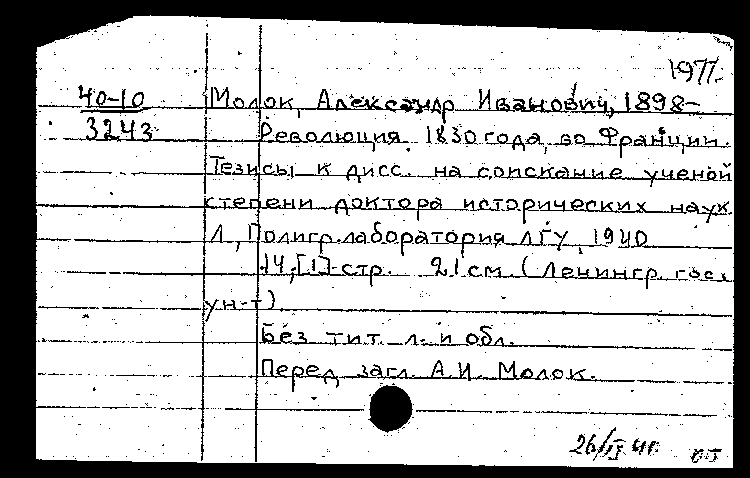 1977.
40-10 Молок, Александр Иванович, 1898-
3243 Революция 1830 года во Франции.
Тезисы к дисс. на соискание ученой
степени доктора исторических наук
Л., Полигр. лаборатория ЛГУ, 1940
14, [1] стр. 21 см (Ленингр. гос.
ун-т)
Без тит. л. и обл.
Перед загл. А.И. Молок.
26/IX 40